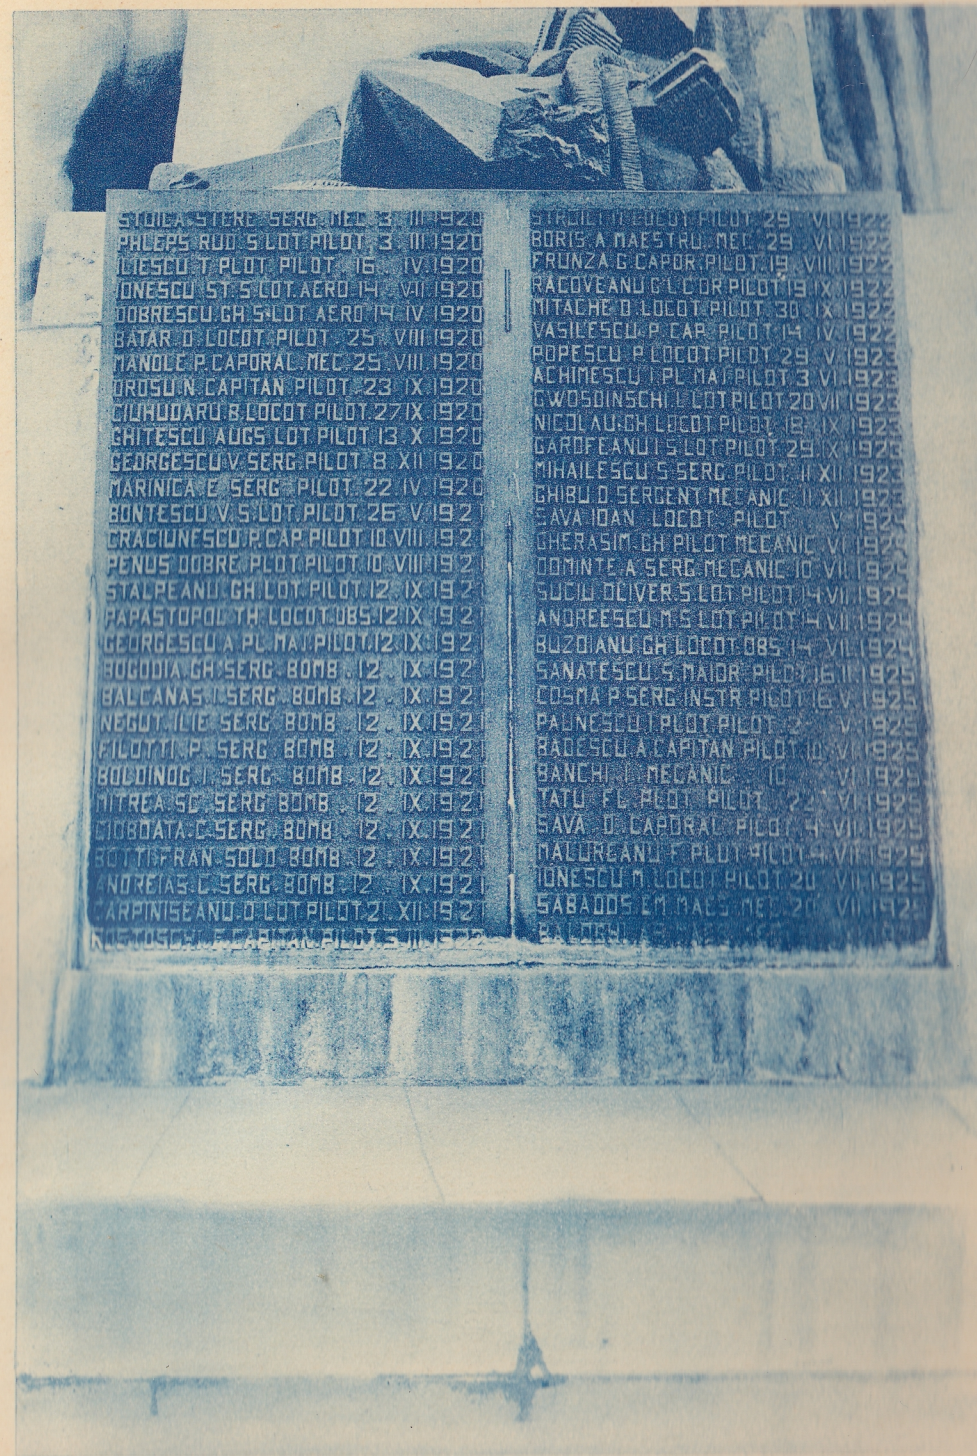 STOICA.STERE SERG MEC 3 III 1920
PHLEPS RUD.S.LOT PILOT. 3. III.1920
ILIESCU.T PLOT.PILOT. 16. IV.1920
IONESCU ST.S.LOT.AERO 14. VII 1920
DOBRESCU.GH.S.LOT AERO 14 IV 1920
BATAR.D.LOCOT PILOT 25 VIII 1920
MANOLE P.CAPORAL.MEC.25.VIII.1920
OROSU.N.CAPITAN PILOT.23 IX 1920
CIUHUDARU.B.LOCOT PILOT.27 IX 1920
GHITESCU AUG S.LOT.PILOT 13.X 1920
GEORGESCU V.SERG.PILOT 8 XII 1920
MARINICA.E SERG PILOT 22 IV 1920
BONTESCU.V.S.LOT.PILOT 26 V.1921
CRACIUNESCU.P.CAP PILOT 10.VIII.1921
PENUS DOBRE.PLOT.PILOT 10.VIII 1921
STALPEANU.GH.LOT.PILOT.12 IX 1921
PAPASTOPOL TH.LOCOT.OBS.12.IX 1921
GEORGESCU A.PL.MAJ.PILOT.12 IX.1921
GOGODIA.GH.SERG.BOMB 12. IX.1921
BALCANAS.I.SERG.BOMB.12 IX.1921
NEGUT.ILIE SERG BOMB .12. IX.1921
FILOTTI.P. SERG. BOMB .12. IX.1921
BOLDINOG.I. SERG. BOMB .12. IX.1921
MITREA.SC. SERG BOMB .12. IX.1921
CIOBOATA.C.SERG. BOMB .12. IX.1921
BOTTI.FRAN SOLD.BOMB .12. IX.1921
ANDREIAS.C.SERG.BOMB .12 IX.1921
CARPINISEANU.D.LOT PILOT 21.XII.1921
CAPITAN.PILOT.5 III.1922
LOCOT PILOT 29 VI 1922
BORIS.A MAESTRU.MEC.29. VI.1922
FRUNZA.G.CAPOR.PILOT.19. VIII.1922
RACOVEANU G.LCOR PILOT 19 X.1922
MITACHE D.LOCOT PILOT. 30. X.1922
VASILESCU.P.CAP. PILOT 14. IV 1922
POPESCU P.LOCOT.PILOT 29. V.1923
ACHIMESCU I.PL MAJ PILOT.3 VI.1923
GWOSDINSCHI.I.LOT PILOT 20 VII 1923
NICOLAU.GH LOCOT PILOT 18 IX 1923
GAROFEANU I S.LOT PILOT 29 IX 1923
MIHAILESCU S SERG PILOT 11 XII 1923
GHIBU.D SERGENT MECANIC 11 XII.1923
SAVA IOAN LOCOT. PILOT V 1924
GHERASIM.GH PILOT MECANIC VI 1924
DOMINTE A SERG MECANIC 10 VII 1924
SUCIU OLIVER S.LOT PILOT 14 VII 1924
ANDREESCU M.S LOT PILOT 4 VII 1924
BUZOIANU GH LOCOT OBS 14 VII 1924
SANATESCU S MAIOR PILOT 16 1925
COSMA P SERG INSTR PILOT 16 V 1925
PAUNESCU I PLOT PILOT V 1925
BADESCU A CAPITAN PILOT 10 VI 1925
BANCHI I MECANIC 10 VI 1925
TATU FL PLOT PILOT 22 VI 1925
SAVA D CAPORAL PILOT 4 VII 1925
MALUREANU F PLOT PILOT 4 VII 1925
IONESCU M LOCOT PILOT 20 VII 1925
SABADOS EM MAES MEC 20 VII 1925